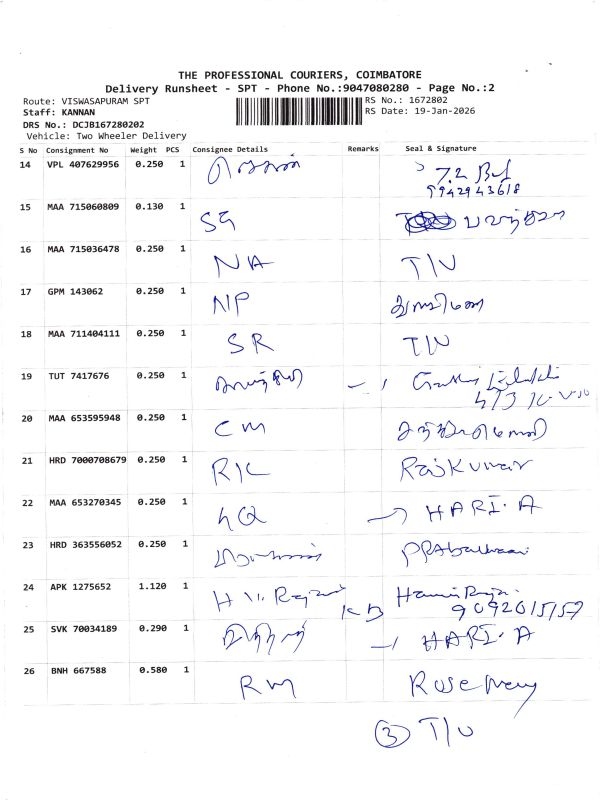 THE PROFESSIONAL COURIERS, COIMBATORE
Delivery Runsheet - SPT - Phone No.:9047080280 - Page No.:2
Route: VISWASAPURAM SPT
RS No.: 1672802
Staff: KANNAN
RS Date: 19-Jan-2026
DRS No.: DCJB167280202
Vehicle: Two Wheeler Delivery
S No Consignment No Weight PCS Consignee Details Remarks Seal & Signature
14 VPL 407629956 0.250 1
9942943618
15 MAA 715060809 0.130 1
16 MAA 715036478 0.250 1 NA T/U
17 GPM 143062 0.250 1 NP
18 MAA 711404111 0.250 1 SR T/U
19 TUT 7417676 0.250 1
20 MAA 653595948 0.250 1 CM
21 HRD 7000708679 0.250 1 RK Rajkumar
22 MAA 653270345 0.250 1 HARI.A
23 HRD 363556052 0.250 1
24 APK 1275652 1.120 1
25 SVK 70034189 0.290 1 HARI.A
26 BNH 667588 0.580 1 RM Rosemary
3 T/U